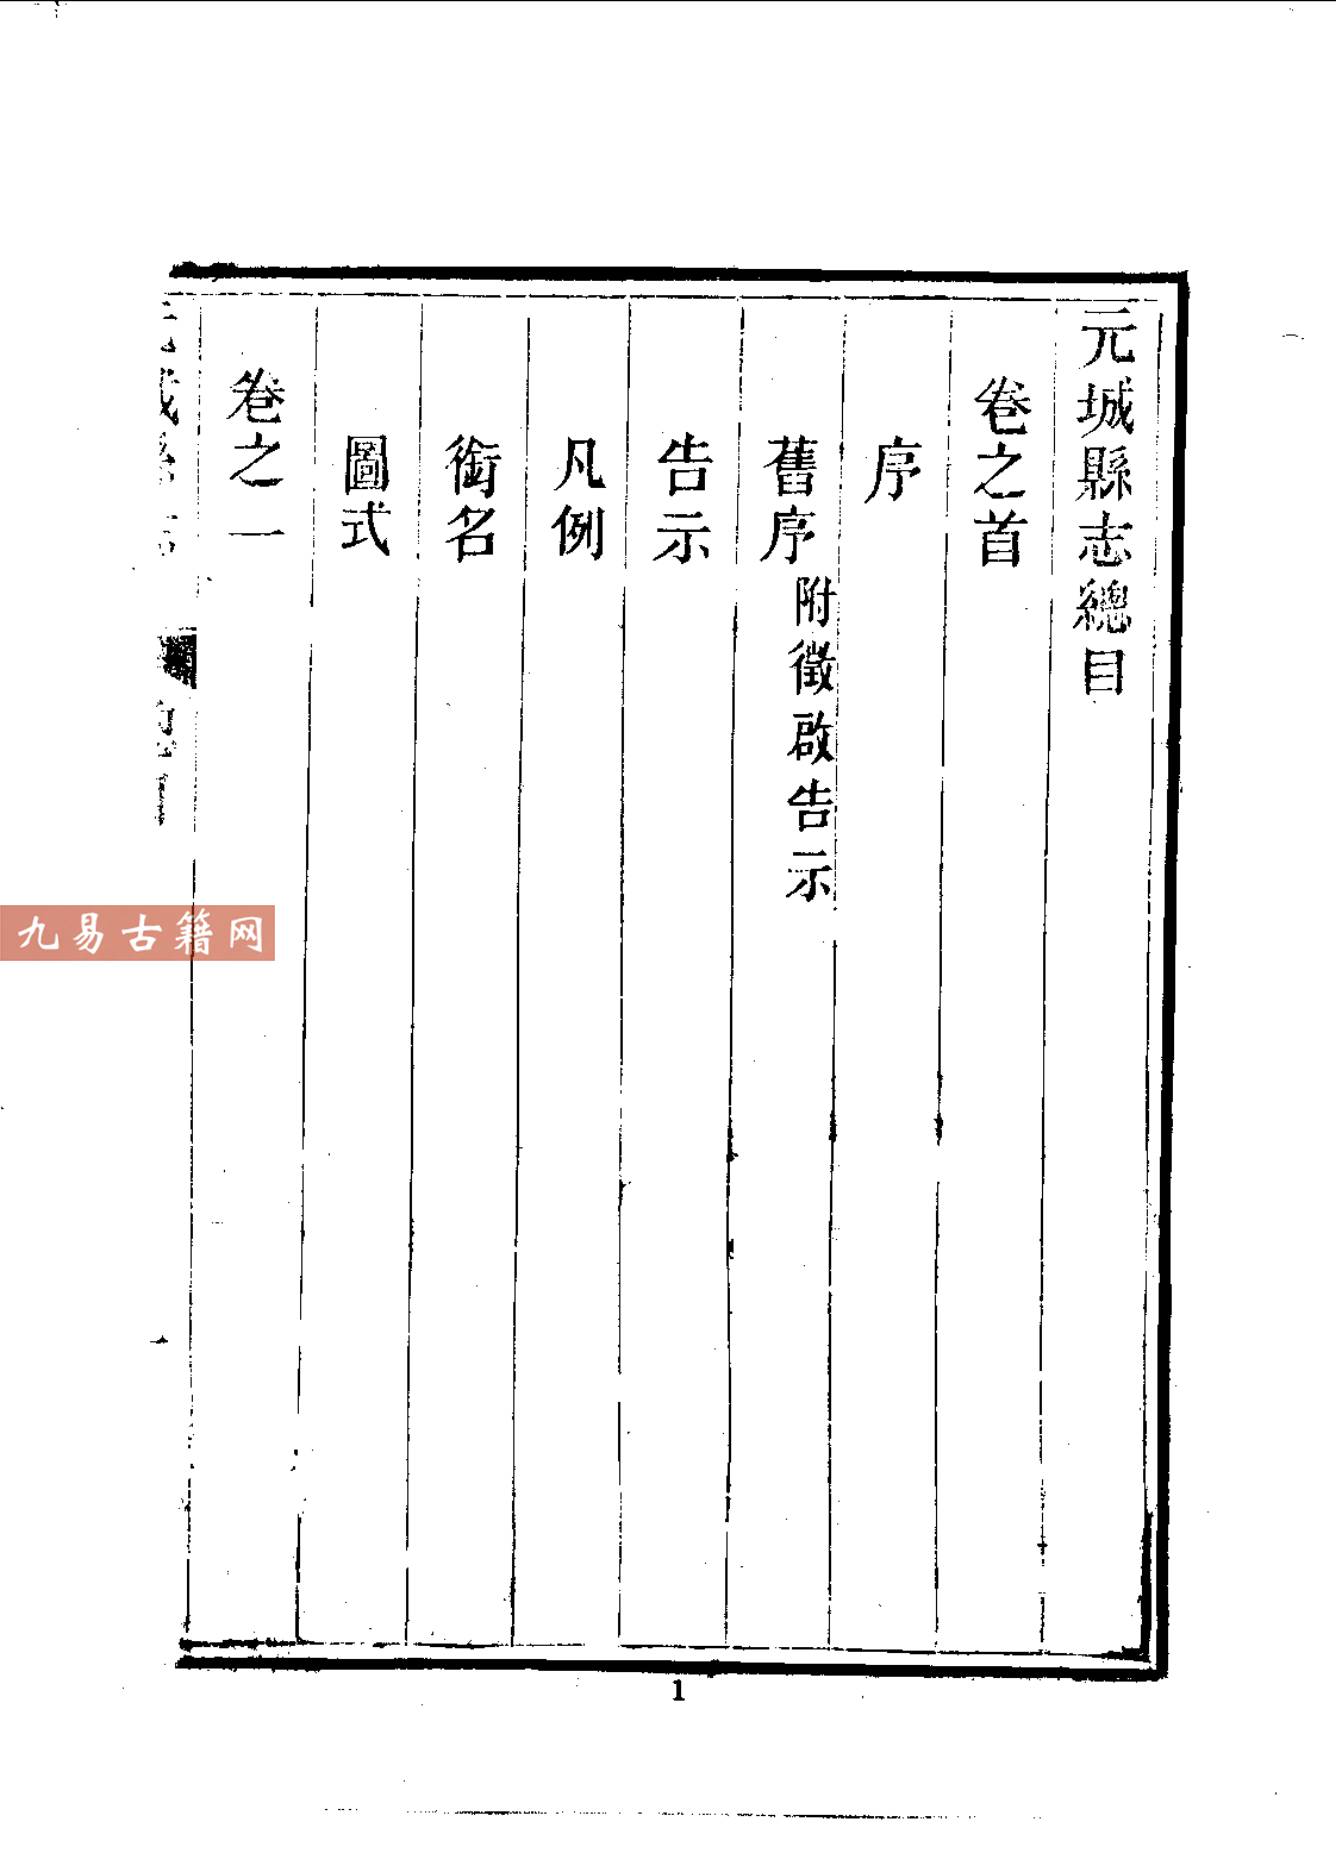 元城縣志總目
卷之首
序
舊序附徵啟告示
告示
凡例
銜名
圖式
卷之一
九易古籍网
1